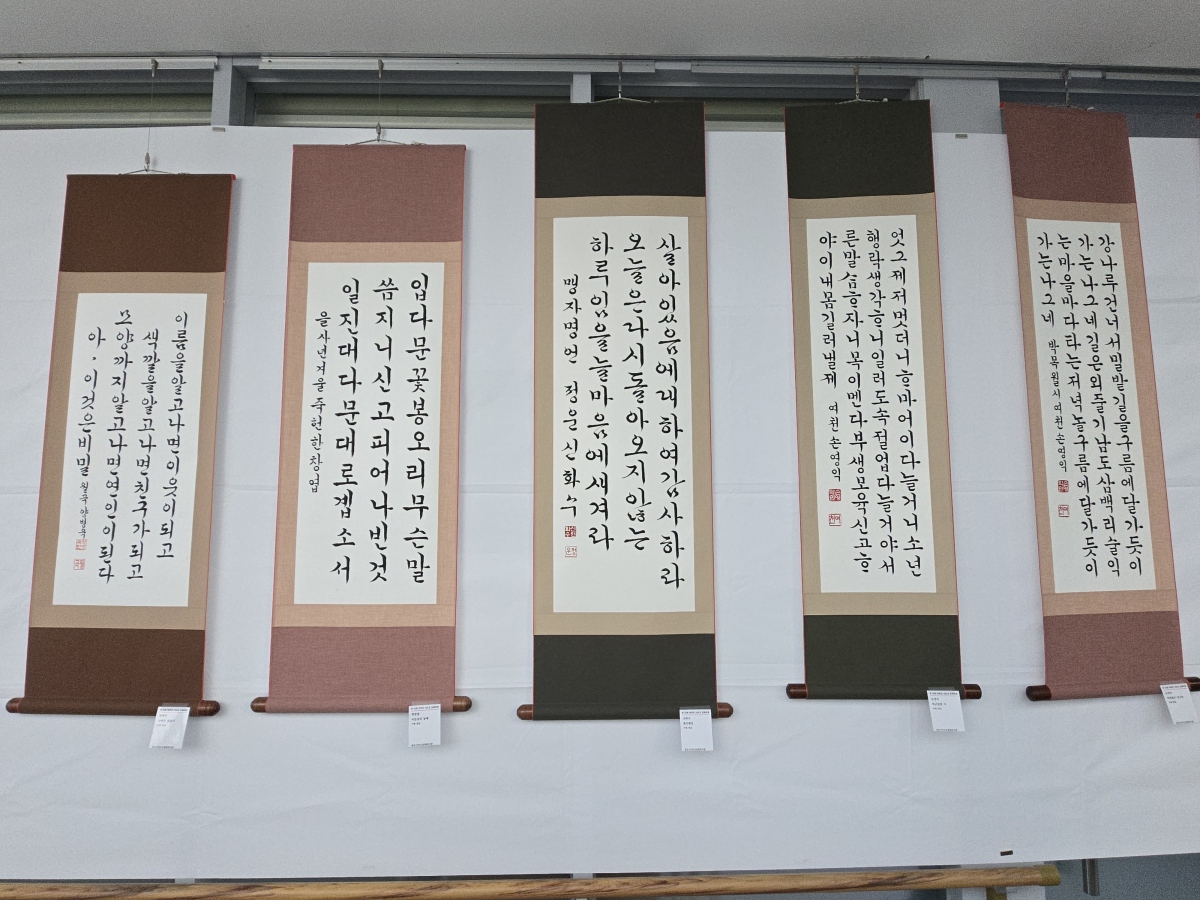 이름을알고나면이웃이되고
색깔을알고나면친구가되고
모양까지알고나면연인이된다
아, 이것은비밀 월묵양병욱
입다문꽃봉오리무슨말
씀지니신고피어나빈것
일진대다문대로곕소서
을사년겨울죽헌한창업
살아있음에대하여감사하라
오늘은다시돌아오지않는
하루임을늘마음에새겨라
맹자명언 정운신화수
엇그제저멋더니ᄒᆞ마어이다늘거니소년
행락생각ᄒᆞ니일러도속절업다늘거야서
른말ᄉᆞᆷᄒᆞ자니목이멘다부생모육신고ᄒᆞ
야이내몸길러낼제 여천손영익
강나루건너서밀밭길을구름에달가듯이
가는나그네길은외줄기남도삼백리술익
는마을마다타는저녁놀구름에달가듯이
가는나그네 박목월시여천손영익